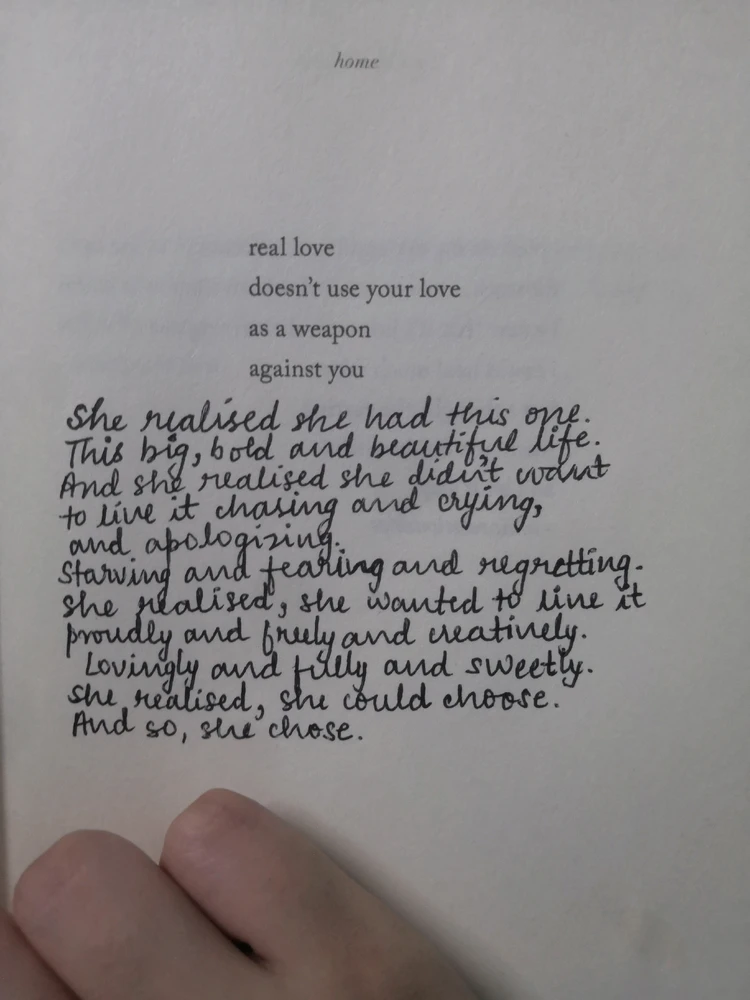 home
real love
doesn't use your love
as a weapon
against you
She realised she had this one.
This big, bold and beautiful life.
And she realised she didn't want
to live it chasing and crying,
and apologizing.
Starving and fearing and regretting.
She realised, she wanted to live it
proudly and freely and creatively.
Lovingly and fully and sweetly.
She realised, she could choose.
And so, she chose.